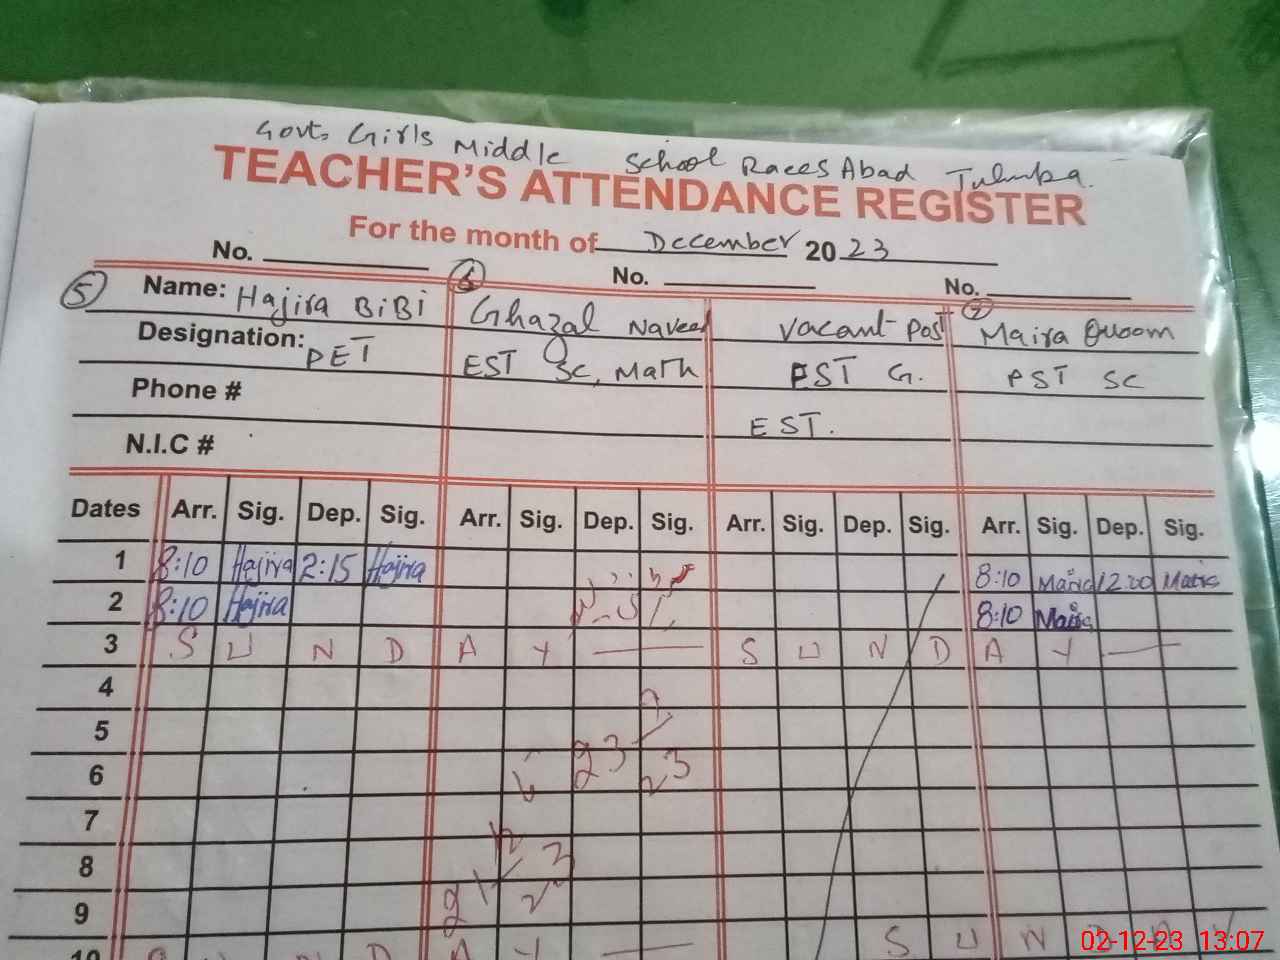 Govt. Girls Middle School Raees Abad Tulumba.
TEACHER'S ATTENDANCE REGISTER
For the month of December 2023
No. No. No.
5 6 7
Name: Hajira BiBi Ghazal Naveed Vacant Post Maira
Designation: PET EST SC, Math PST G. PST SC
Phone # EST.
N.I.C #
Dates Arr. Sig. Dep. Sig. Arr. Sig. Dep. Sig. Arr. Sig. Dep. Sig. Arr. Sig. Dep. Sig.
1 8:10 Hajira 2:15 Hajira 8:10 Maira 12:00 Maira
2 8:10 Hajira 8:10 Maira
3 S U N D A Y S U N D A Y
4
5
6
7
8
9
10 S U N D A Y S U N D A Y
02-12-23 13:07